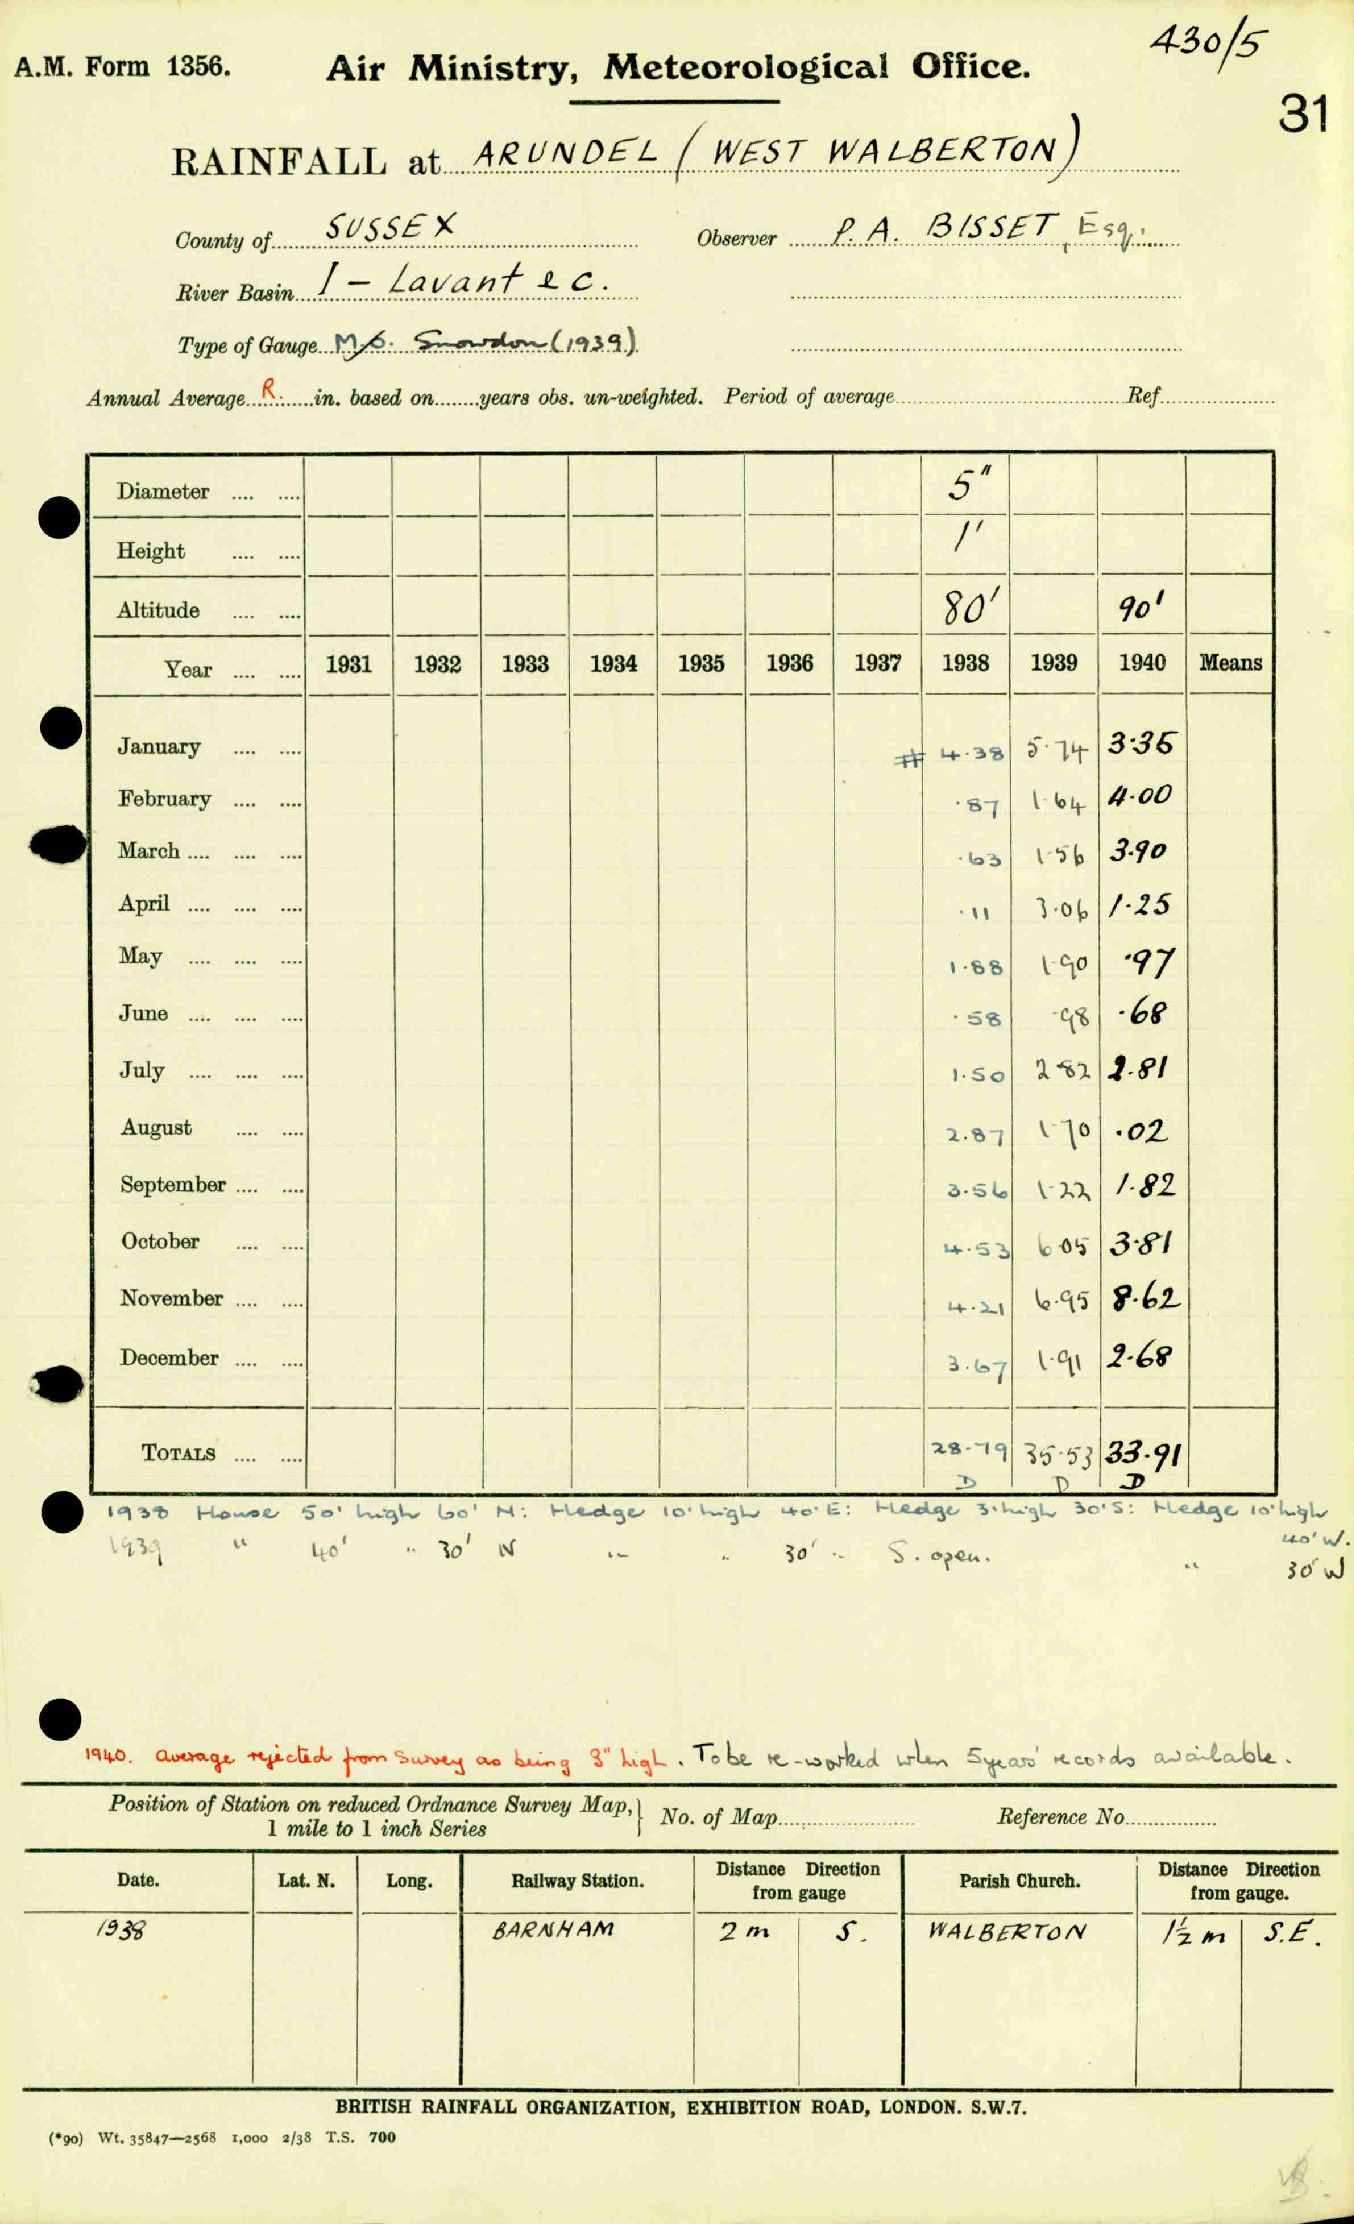 430/5
A.M. Form 1356. Air Ministry, Meteorological Office.
31
RAINFALL at ARUNDEL (WEST WALBERTON)
County of SUSSEX Observer P. A. BISSET, Esq.
River Basin 1 – Lavant & c.
Type of Gauge M.O. Snowdon (1939)
Annual Average R. in. based on years obs. un-weighted. Period of average Ref.
Diameter .... .... 5"
Height .... .... 1'
Altitude .... .... 80' 90'
Year .... .... 1931 1932 1933 1934 1935 1936 1937 1938 1939 1940 Means
January .... .... # 4.38 5.74 3.35
February .... .... .87 1.64 4.00
March .... .... .... .63 1.56 3.90
April .... .... .... .11 3.06 1.25
May .... .... .... 1.88 1.90 .97
June .... .... .... .58 .98 .68
July .... .... .... 1.50 2.82 2.81
August .... .... 2.87 1.70 .02
September .... .... 3.56 1.22 1.82
October .... .... 4.53 6.05 3.81
November .... .... 4.21 6.95 8.62
December .... .... 3.67 1.91 2.68
TOTALS .... .... 28.79 35.53 33.91
D D D
1938 House 50' high 60' N: Hedge 10' high 40' E: Hedge 3' high 30' S: Hedge 10' high
40' W.
1939 " 40' " 30' N " " 30' " S. open. " 30' W
1940. average rejected from Survey as being 3" high. To be re-worked when 5 years' records available.
Position of Station on reduced Ordnance Survey Map, } No. of Map Reference No.
1 mile to 1 inch Series
Date. Lat. N. Long. Railway Station. Distance Direction from gauge Parish Church. Distance Direction from gauge.
1938 BARNHAM 2 m S. WALBERTON 1½ m S.E.
BRITISH RAINFALL ORGANIZATION, EXHIBITION ROAD, LONDON. S.W.7.
(*90) Wt. 35847—2568 1,000 2/38 T.S. 700